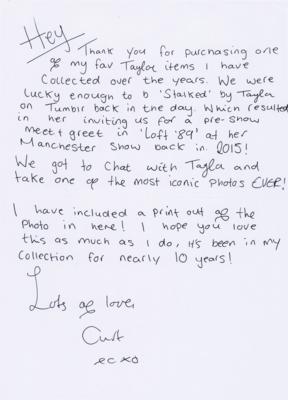 Hey
Thank you for purchasing one
of my fav Tayla items I have
Collected over the years. We were
lucky enough to b 'Stalked' by Tayla
on Tumblr back in the day. Which resulted
in her inviting us for a pre-show
meet & greet in 'Loft '89' at her
Manchester Show back in 2015!
We got to Chat with Tayla and
take one of the most iconic photos EVER!
I have included a print out of the
Photo in here! I hope you love
this as much as I do, it's been in my
Collection for nearly 10 years!
Lots of love,
xo